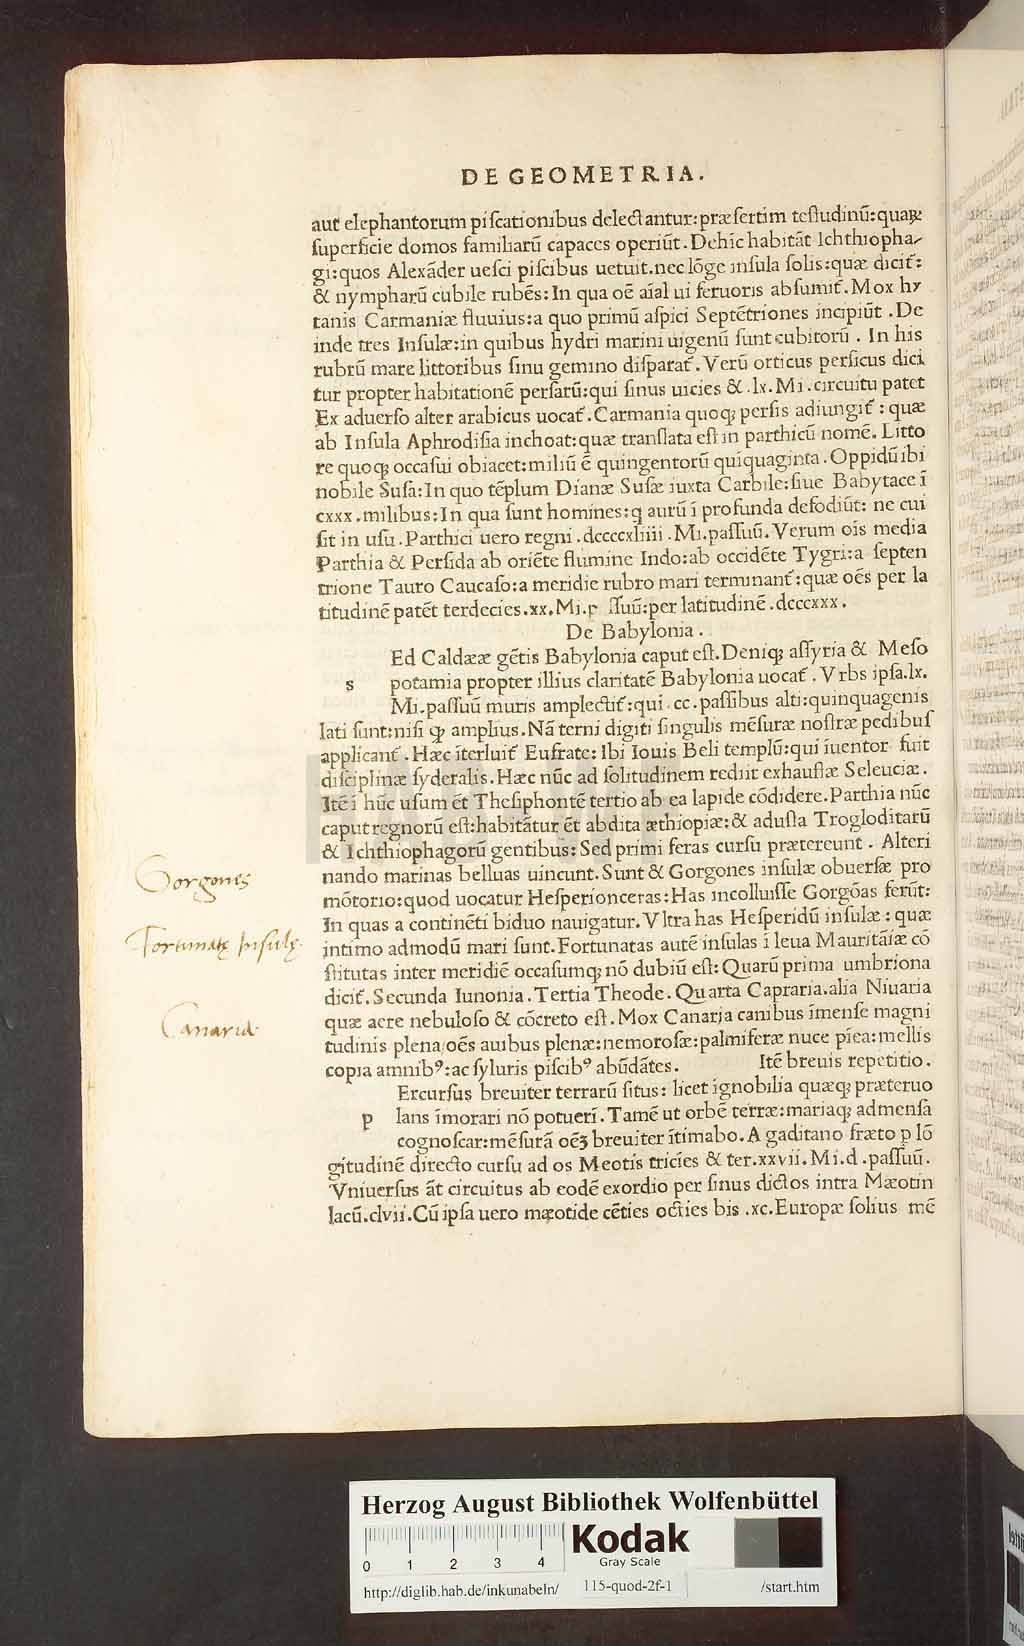 DE GEOMETRIA.
aut elephantorum piſcationibus delectantur: præſertim teſtudinū: quaꝝ
ſuperficie domos familiarū capaces operiūt. Dehīc habitāt Ichthiopha-
gi: quos Alexāder ueſci piſcibus uetuit. nec lōge inſula ſolis: quæ dicit᷑:
& nympharū cubile rubēs: In qua oē aīal ui feruoris abſumit᷑. Mox hy
tanis Carmaniæ fluuius: a quo primū aſpici Septētriones incipiūt. De
inde tres Inſulæ: in quibus hydri marini uigenū ſunt cubitorū. In his
rubrū mare littoribus ſinu gemino diſparat᷑. Verū orticus perſicus dici
tur propter habitationē perſarū: qui ſinus uicies & .lx. Mi. circuitu patet
Ex aduerſo alter arabicus uocat᷑. Carmania quoqꝫ perſis adiungit᷑: quæ
ab Inſula Aphrodiſia inchoat: quæ tranſlata eſt in parthicū nomē. Litto
re quoqꝫ occaſui obiacet: miliū ē quingentorū quīquaginta. Oppidū ibi
nobile Suſa: In quo tēplum Dianæ Suſæ iuxta Carbile: ſiue Babytace ī
cxxx. milibus: In qua ſunt homines: q aurū ī profunda defodiūt: ne cui
ſit in uſu. Parthici uero regni .dccccxliiii. Mi. paſſuū. Verum oīs media
Parthia & Perſida ab oriēte flumine Indo: ab occidēte Tygri: a ſepten
trione Tauro Caucaſo: a meridie rubro mari terminant᷑: quæ oēs per la
titudinē patēt terdecies .xx. Mi. p ſſuū: per latitudinē .dcccxxx.
De Babylonia.
Ed Caldææ gētis Babylonia caput eſt. Deniqꝫ aſſyria & Meſo
s potamia propter illius claritatē Babylonia uocat᷑. Vrbs ipſa .lx.
Mi. paſſuū muris amplectit᷑: qui .cc. paſſibus alti: quinquagenis
lati ſunt: niſi qꝫ amplius. Nā terni digiti ſingulis mēſuræ noſtræ pedibuſ
applicant᷑. Hæc īterluit᷑ Eufrate: Ibi Iouis Beli templū: qui īuentor fuit
diſciplinæ ſyderalis. Hæc nūc ad ſolitudinem rediit exhauſtæ Seleuciæ.
Itē ī hūc uſum ēt Theſiphontē tertio ab ea lapide cōdidere. Parthia nūc
caput regnorū eſt: habitātur ēt abdita æthiopiæ: & aduſta Trogloditarū
& Ichthiophagorū gentibus: Sed primi feras curſu prætereunt. Alteri
nando marinas belluas uincunt. Sunt & Gorgones inſulæ obuerſæ pro
mōtorio: quod uocatur Heſperionceras: Has incoluiſſe Gorgōas ferūt:
In quas a continēti biduo nauigatur. Vltra has Heſperidū inſulæ: quæ
intimo admodū mari ſunt. Fortunatas autē inſulas ī leua Mauritāiæ cō
ſtitutas inter meridiē occaſumqꝫ nō dubiū eſt: Quarū prima umbriona
dicit᷑. Secunda Iunonia. Tertia Theode. Quarta Capraria. alia Niuaria
quæ aere nebuloſo & cōcreto eſt. Mox Canaria canibus īmenſe magni
tudinis plena: oēs auibus plenæ: nemoroſæ: palmiferæ nuce piea: mellis
copia amnibꝰ: ac ſyluris piſcibꝰ abūdātes. Itē breuis repetitio.
Ercurſus breuiter terrarū ſitus: licet ignobilia quæqꝫ præteruo
p lans īmorari nō potuerī. Tamē ut orbē terræ: mariaqꝫ admenſa
cognoſcar: mēſurā oēꝫ breuiter ītimabo. A gaditano fræto ꝑ lō
gitudinē directo curſu ad os Meotis tricies & ter .xxvii. Mi. d. paſſuū.
Vniuerſus āt circuitus ab eodē exordio per ſinus dictos intra Mæotin
lacū. clvii. Cū ipſa uero mæotide cēties octies bis .xc. Europæ ſolius mē
Gorgones
Fortunatę Insulę.
Canaria.
HAB-WF
Herzog August Bibliothek Wolfenbüttel
0 1 2 3 4
Kodak
Gray Scale
http://diglib.hab.de/inkunabeln/ 115-quod-2f-1 /start.htm